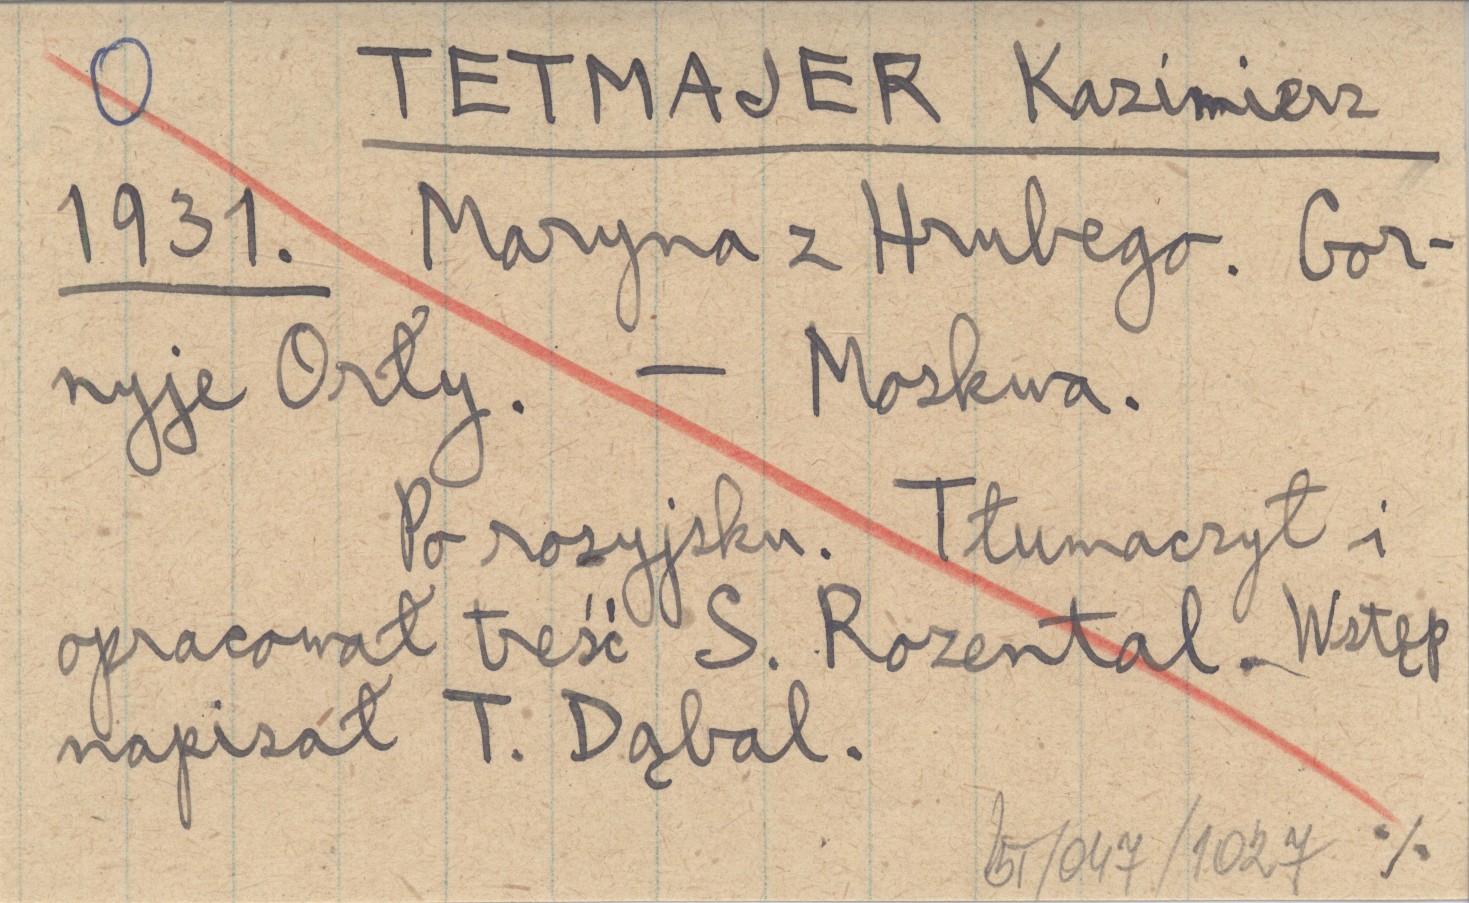 TETMAJER Kazimierz
1931. Maryna z Hrubego. Gor-
nyje Orły. — Moskwa.
Po rosyjsku. Tłumaczył i
opracował treść S. Rozental. Wstęp
napisał T. Dąbal.
/047/1027 ·/.